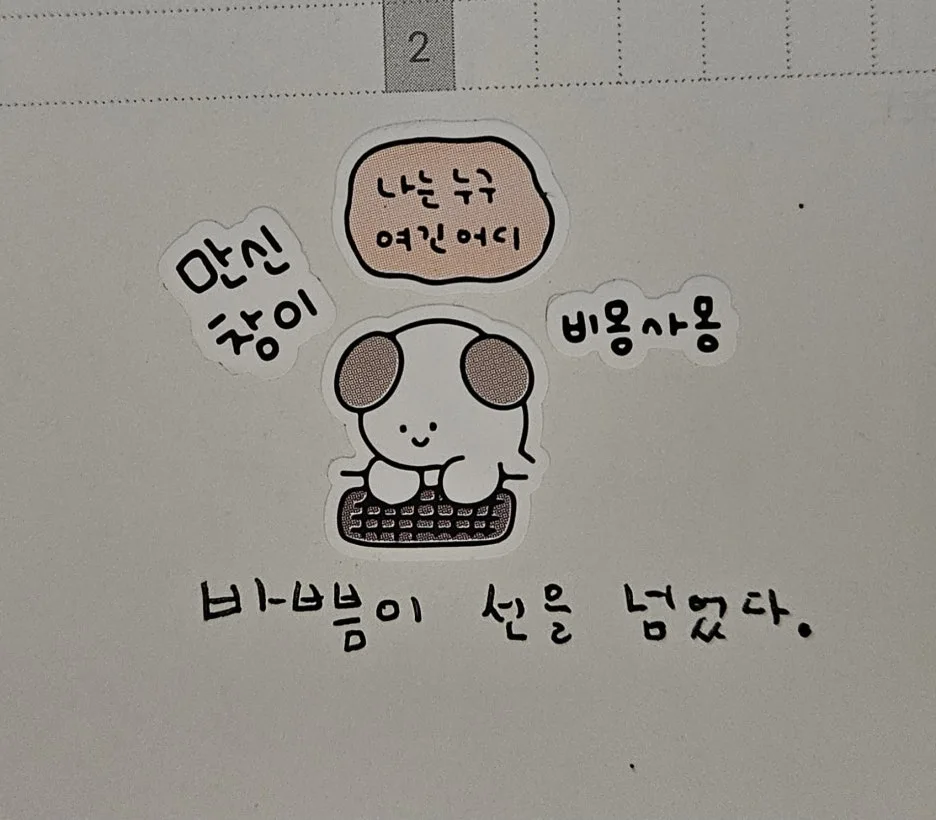 2
나는 누구
여긴 어디
만신
창이
비몽사몽
바쁨이 선을 넘었다.